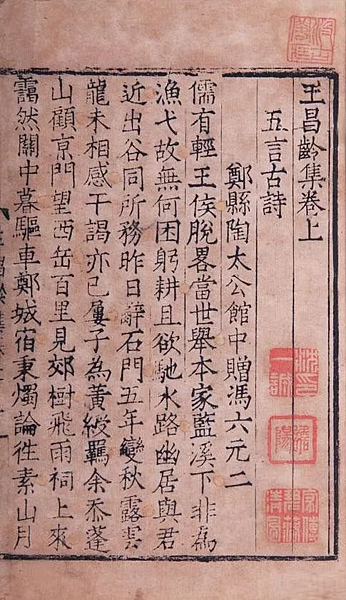 王昌齡集卷上
五言古詩
鄭縣陶太公館中贈馮六元二
儒有輕王侯脫畧當世舉本家藍溪下非爲
漁弋故無何困躬耕且欲馳永路幽居與君
近出谷同所務昨日辭石門五年變秋露雲
龍未相感干謁亦已屢子為黃綬羈余忝蓬
山顧京門望西岳百里見郊樹飛雨祠上來
靄然關中暮驅車鄭城宿秉燭論徃素山月